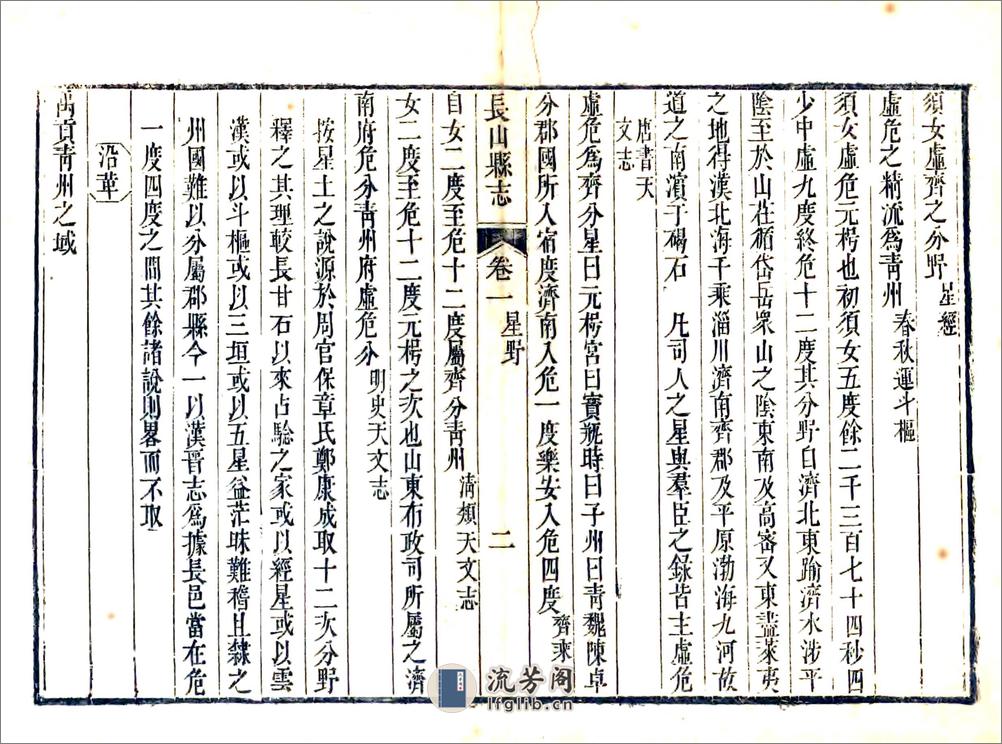 須女虛齊之分野星經
虛危之精流爲青州春秋運斗樞
須女虛危元枵也初須女五度餘二千三百七十四秒四
少中虛九度終危十二度其分野自濟北東踰濟水涉平
陰至於山茌循岱岳衆山之陰東南及高密又東盡萊夷
之地得漢北海千乘淄川濟南齊郡及平原渤海九河故
道之南濱于碣石 凡司人之星與羣臣之錄皆主虛危
唐書天
文志
虛危爲齊分星曰元枵宮曰寶瓶時曰子州曰青魏陳卓
分郡國所入宿度濟南入危一度樂安入危四度齊乘
長山縣志 卷一 星野 二
自女二度至危十二度屬齊分青州清類天文志
女二度至危十二度元枵之次也山東布政司所屬之濟
南府危分青州府虛危分明史天文志
按星土之說源於周官保章氏鄭康成取十二次分野
釋之其理較長甘石以來占驗之家或以經星或以雲
漢或以斗樞或以三垣或以五星益茫昧難稽且隸之
州國難以分屬郡縣今一以漢晉志爲據長邑當在危
一度四度之間其餘諸說則畧而不取
沿革
禹貢青州之域
流芳阁
lfglib.cn